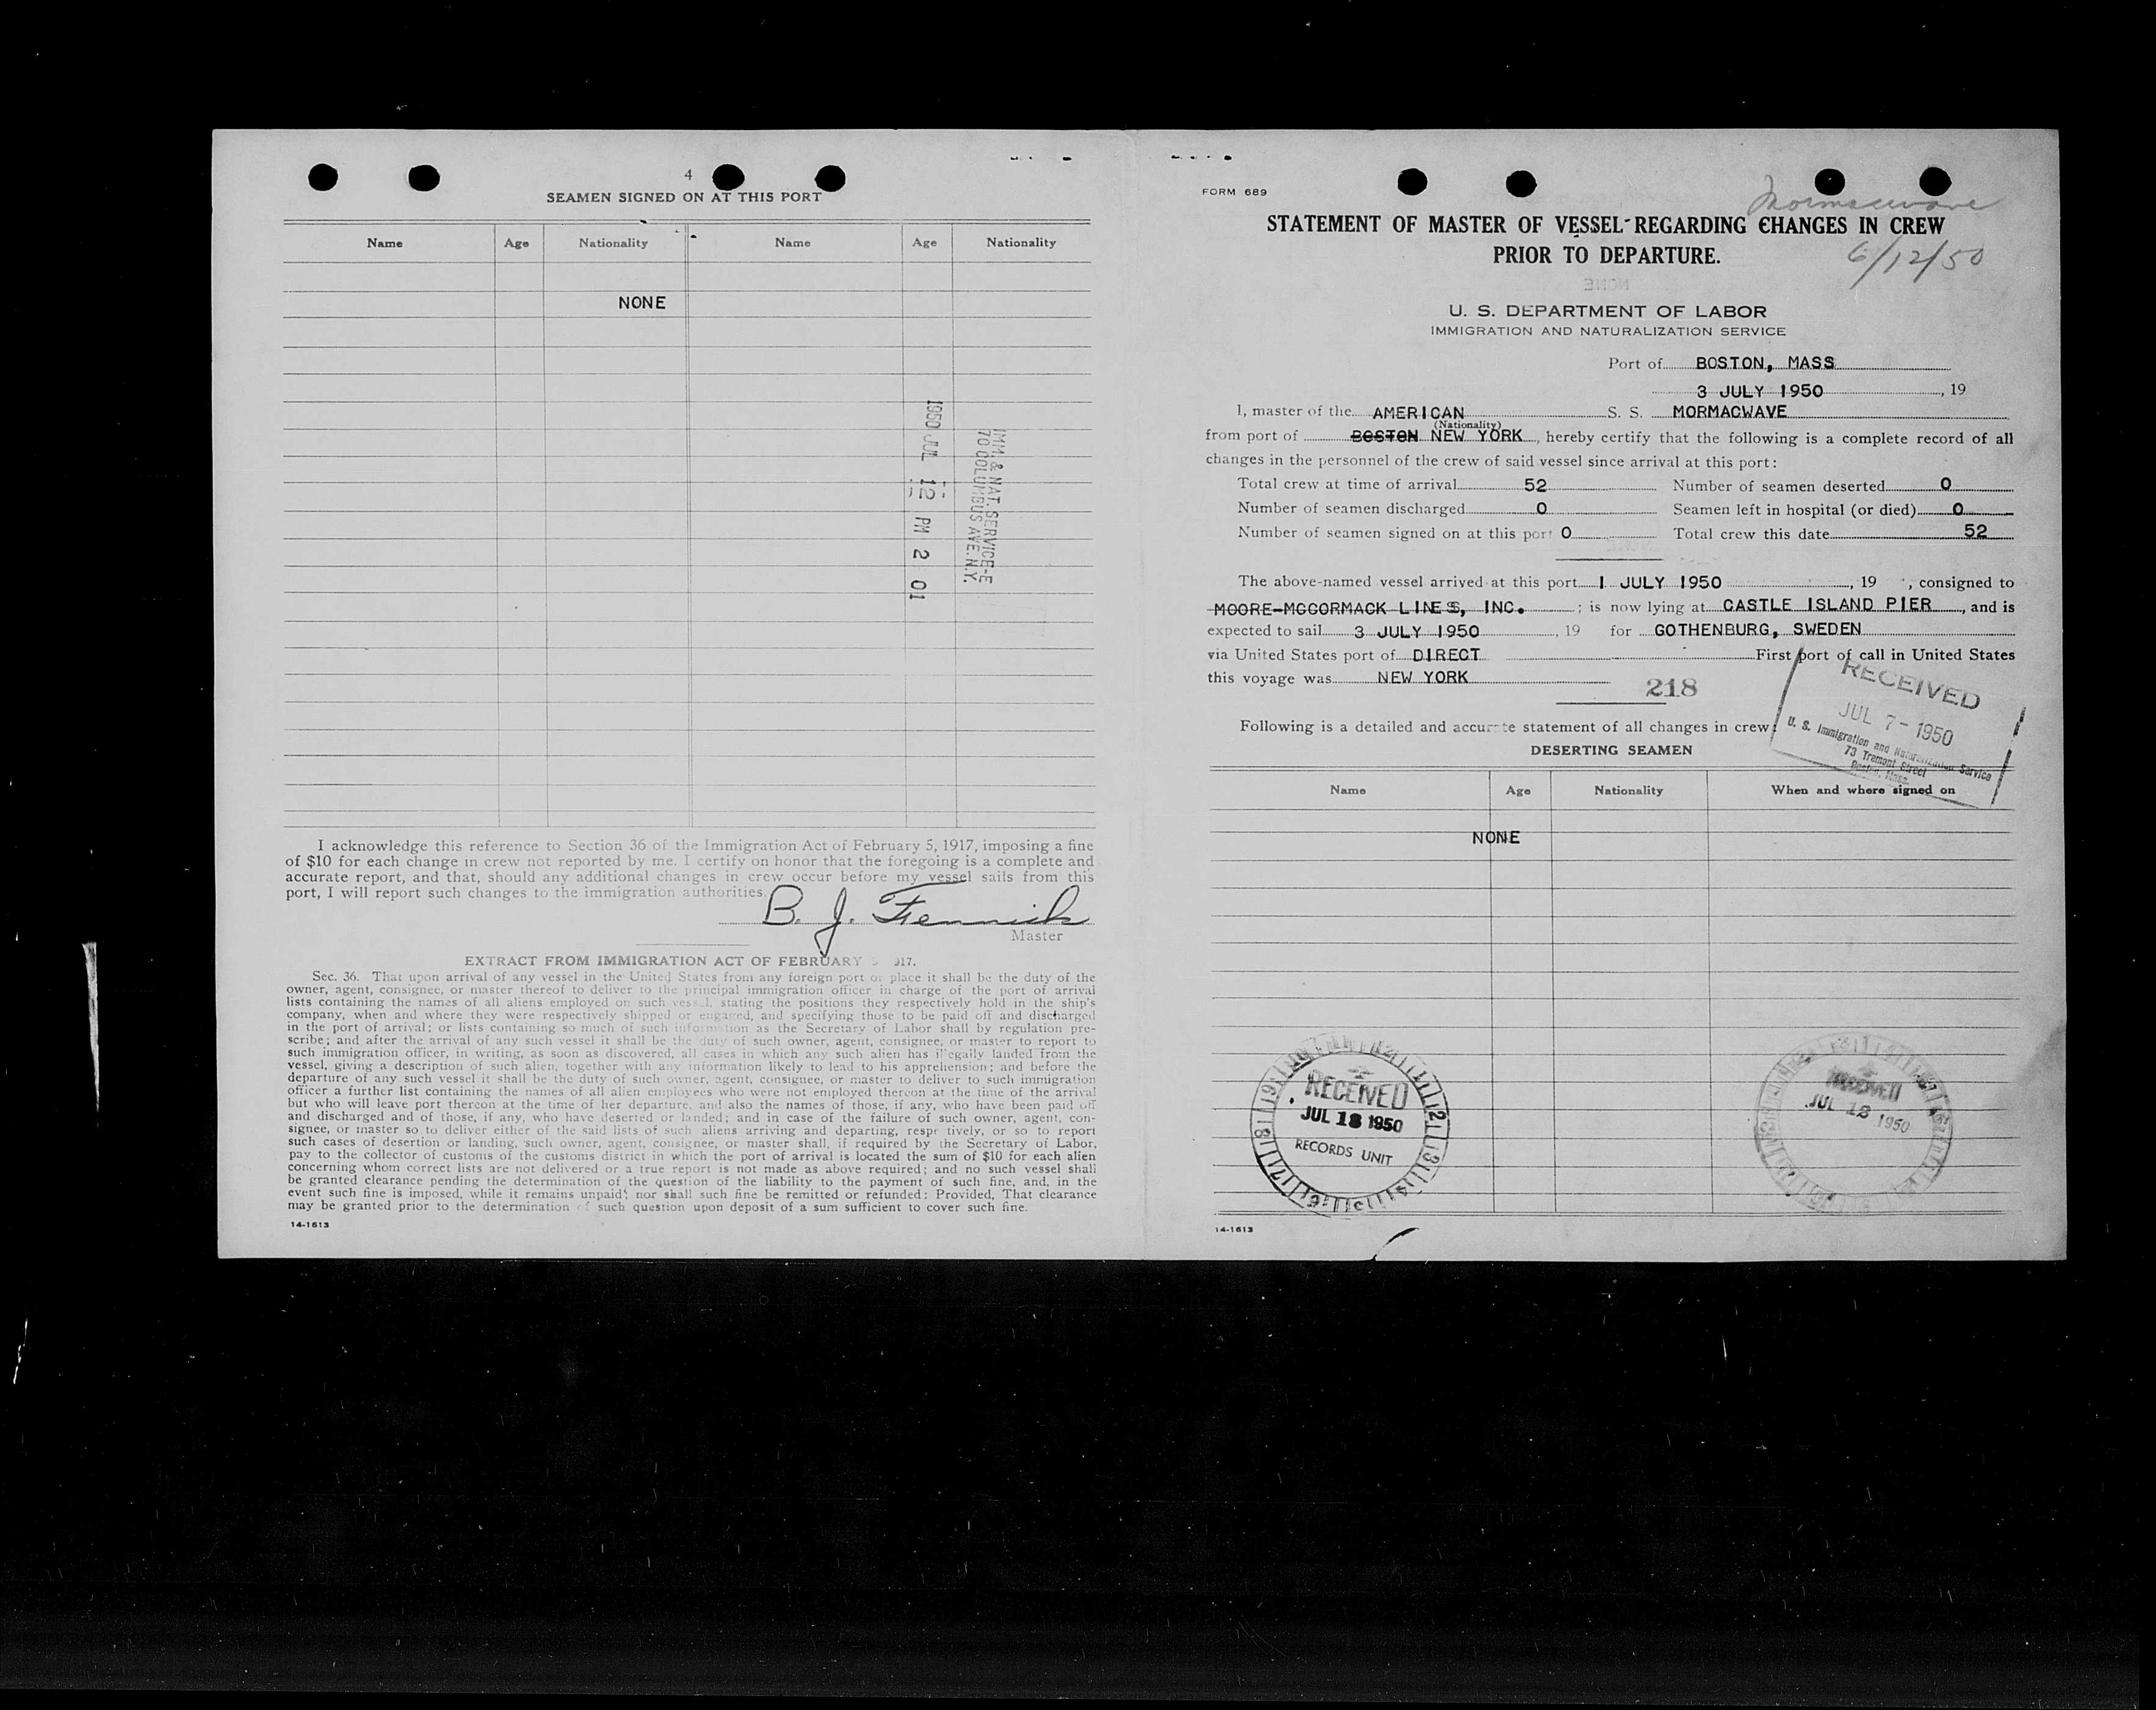 4
SEAMEN SIGNED ON AT THIS PORT
Name Age Nationality Name Age Nationality
NONE
1950 JUL 12 PM 2 01
IMM. & NAT. SERVICE-E
70 COLUMBUS AVE. N.Y.
I acknowledge this reference to Section 36 of the Immigration Act of February 5, 1917, imposing a fine
of $10 for each change in crew not reported by me. I certify on honor that the foregoing is a complete and
accurate report, and that, should any additional changes in crew occur before my vessel sails from this
port, I will report such changes to the immigration authorities.
B. J. Fennick
Master
EXTRACT FROM IMMIGRATION ACT OF FEBRUARY 5 917.
Sec. 36. That upon arrival of any vessel in the United States from any foreign port or place it shall be the duty of the
owner, agent, consignee, or master thereof to deliver to the principal immigration officer in charge of the port of arrival
lists containing the names of all aliens employed on such vessel, stating the positions they respectively hold in the ship's
company, when and where they were respectively shipped or engaged, and specifying those to be paid off and discharged
in the port of arrival; or lists containing so much of such information as the Secretary of Labor shall by regulation pre-
scribe; and after the arrival of any such vessel it shall be the duty of such owner, agent, consignee, or master to report to
such immigration officer, in writing, as soon as discovered, all cases in which any such alien has illegally landed from the
vessel, giving a description of such alien, together with any information likely to lead to his apprehension; and before the
departure of any such vessel it shall be the duty of such owner, agent, consignee, or master to deliver to such immigration
officer a further list containing the names of all alien employees who were not employed thereon at the time of the arrival
but who will leave port thereon at the time of her departure, and also the names of those, if any, who have been paid off
and discharged and of those, if any, who have deserted or landed; and in case of the failure of such owner, agent, con-
signee, or master so to deliver either of the said lists of such aliens arriving and departing, respectively, or so to report
such cases of desertion or landing, such owner, agent, consignee, or master shall, if required by the Secretary of Labor,
pay to the collector of customs of the customs district in which the port of arrival is located the sum of $10 for each alien
concerning whom correct lists are not delivered or a true report is not made as above required; and no such vessel shall
be granted clearance pending the determination of the question of the liability to the payment of such fine, and, in the
event such fine is imposed, while it remains unpaid; nor shall such fine be remitted or refunded: Provided, That clearance
may be granted prior to the determination of such question upon deposit of a sum sufficient to cover such fine.
14-1613
FORM 689
Mormacwave
STATEMENT OF MASTER OF VESSEL REGARDING CHANGES IN CREW
PRIOR TO DEPARTURE.
6/12/50
U. S. DEPARTMENT OF LABOR
IMMIGRATION AND NATURALIZATION SERVICE
Port of BOSTON, MASS
3 JULY 1950, 19
I, master of the AMERICAN S. S. MORMACWAVE
(Nationality)
from port of BOSTON NEW YORK, hereby certify that the following is a complete record of all
changes in the personnel of the crew of said vessel since arrival at this port:
Total crew at time of arrival 52 Number of seamen deserted 0
Number of seamen discharged 0 Seamen left in hospital (or died) 0
Number of seamen signed on at this port 0 Total crew this date 52
The above-named vessel arrived at this port 1 JULY 1950, 19 , consigned to
MOORE-MCCORMACK LINES, INC. ; is now lying at CASTLE ISLAND PIER, and is
expected to sail 3 JULY 1950, 19 for GOTHENBURG, SWEDEN
via United States port of DIRECT First port of call in United States
this voyage was NEW YORK
218
RECEIVED
JUL 7 - 1950
U. S. Immigration and Naturalization Service
73 Tremont Street
Boston, Mass.
Following is a detailed and accurate statement of all changes in crew:
DESERTING SEAMEN
Name Age Nationality When and where signed on
NONE
RECEIVED
JUL 18 1950
RECORDS UNIT
RECEIVED
JUL 18 1950
14-1613